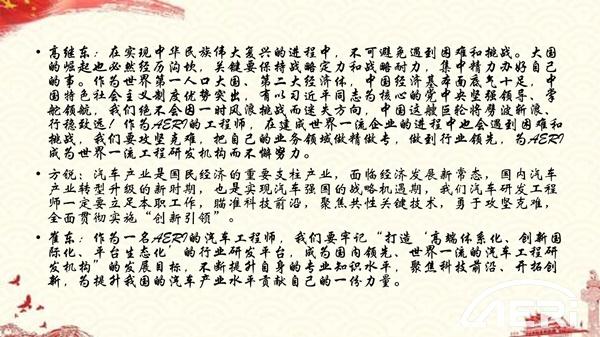 • 高维东：在实现中华民族伟大复兴的进程中，不可避免遇到困难和挑战。大国
的崛起也必然经历沟坎，关键要保持战略定力和战略耐力，集中精力办好自己
的事。作为世界第一人口大国、第二大经济体，中国经济基本面底气十足，中国
特色社会主义制度优势突出，有以习近平同志为核心的党中央坚强领导、掌
舵领航，我们绝不会因一时风浪挑战而迷失方向，中国这艘巨轮将劈波斩浪、
行稳致远！作为AERI的工程师，在建成世界一流企业的进程中也会遇到困难和
挑战，我们要攻坚克难，把自己的业务领域做精做专，做到行业领先，为AERI
成为世界一流工程研发机构而不懈努力。
• 方锐：汽车产业是国民经济的重要支柱产业，面临经济发展新常态，国内汽车
产业转型升级的新时期，也是实现汽车强国的战略机遇期，我们汽车研发工程
师一定要立足本职工作，瞄准科技前沿，聚焦共性关键技术，勇于攻坚克难，
全面贯彻实施“创新引领”。
• 崔东：作为一名AERI的汽车工程师，我们要牢记“打造‘高端体系化、创新国
际化、平台生态化’的行业研发平台，成为国内领先、世界一流的汽车工程研
发机构”的发展目标，不断提升自身的专业知识水平，聚焦科技前沿、开拓创
新，为提升我国的汽车产业水平贡献自己的一份力量。
AERI